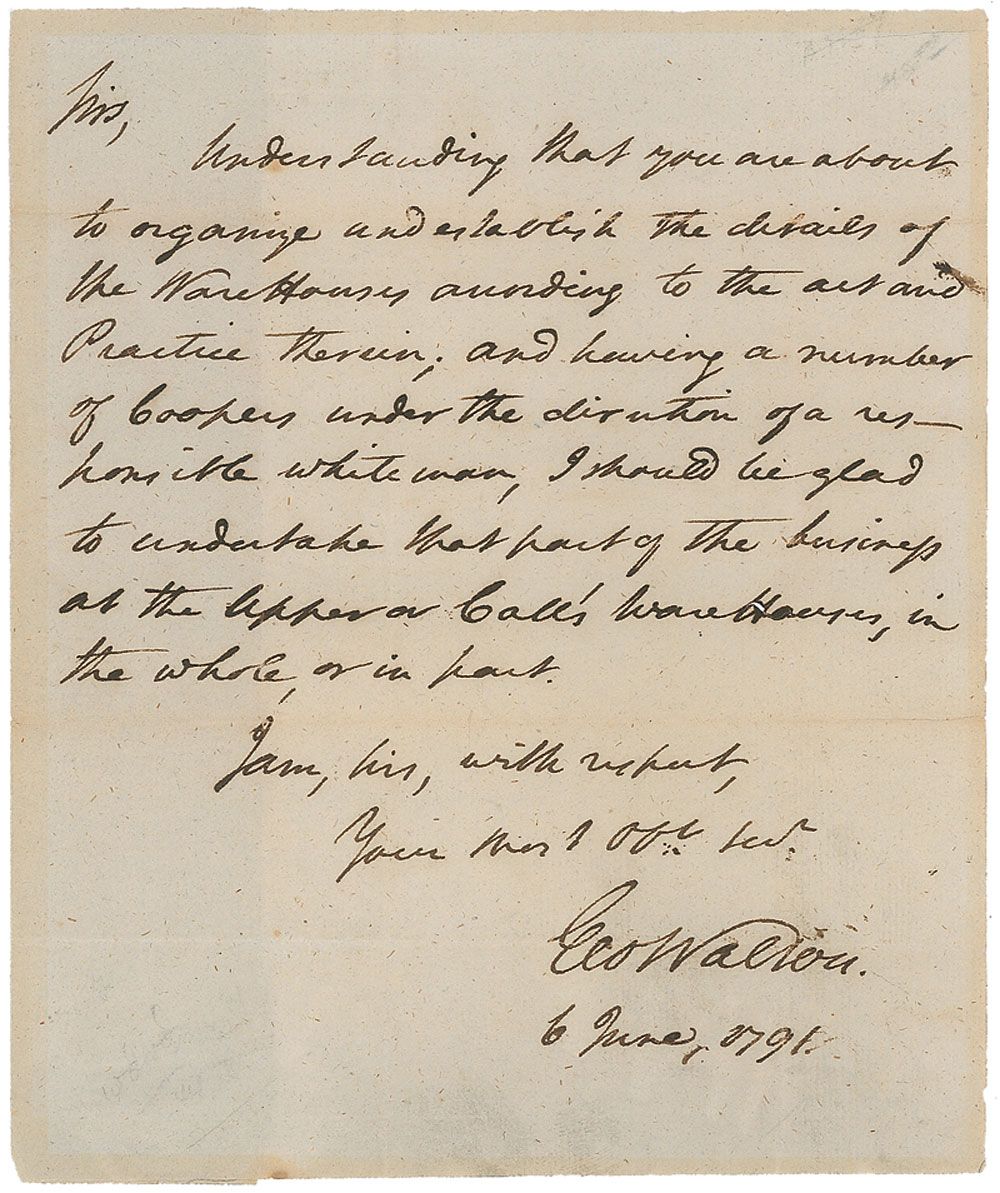 Sirs,
Understanding that you are about
to organize and establish the details of
the WareHouses according to the act and
Practice therein; and having a number
of Coopers under the direction of a res-
ponsible white man, I should be glad
to undertake that part of the business
at the Upper or Call's WareHouses, in
the whole, or in part.
I am, Sirs, with respect,
Your most Obt. Servt.
Geo Walton.
6 June, 1791.